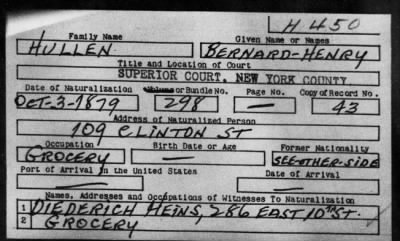 H450
Family Name Given Name or Names
HULLEN BERNARD-HENRY
Title and Location of Court
SUPERIOR COURT, NEW YORK COUNTY
Date of Naturalization Volume or Bundle No. Page No. Copy of Record No.
OCT-3-1879 298 — 43
Address of Naturalized Person
109 CLINTON ST
Occupation Birth Date or Age Former Nationality
GROCERY — SEE-OTHER-SIDE
Port of Arrival in the United States Date of Arrival
— —
Names, Addresses and Occupations of Witnesses To Naturalization
1 DIEDERICH HEINS, 286 EAST 10TH ST.
2 GROCERY